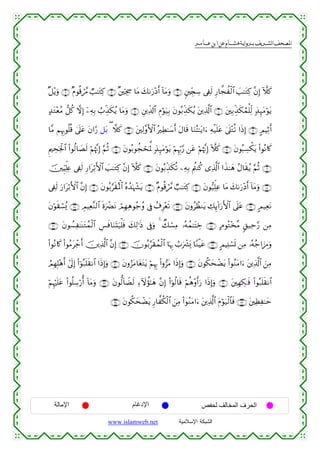 المصحف الشريف برواية هشام عن ابن عامر
كَلَّآ إِنَّ كِتَٰبَ ٱلْفُجَّارِ لَفِى سِجِّينٍ ۝ وَمَآ أَدْرَىٰكَ مَا سِجِّينٌ ۝ كِتَٰبٌ مَّرْقُومٌ ۝ وَيْلٌ
يَوْمَئِذٍ لِّلْمُكَذِّبِينَ ۝ ٱلَّذِينَ يُكَذِّبُونَ بِيَوْمِ ٱلدِّينِ ۝ وَمَا يُكَذِّبُ بِهِۦٓ إِلَّا كُلُّ مُعْتَدٍ
أَثِيمٍ ۝ إِذَا تُتْلَىٰ عَلَيْهِ ءَايَٰتُنَا قَالَ أَسَٰطِيرُ ٱلْأَوَّلِينَ ۝ كَلَّا ۖ بَل رَّانَ عَلَىٰ قُلُوبِهِم مَّا
كَانُوا۟ يَكْسِبُونَ ۝ كَلَّآ إِنَّهُمْ عَن رَّبِّهِمْ يَوْمَئِذٍ لَّمَحْجُوبُونَ ۝ ثُمَّ إِنَّهُمْ لَصَالُوا۟ ٱلْجَحِيمِ
۝ ثُمَّ يُقَالُ هَٰذَا ٱلَّذِى كُنتُم بِهِۦ تُكَذِّبُونَ ۝ كَلَّآ إِنَّ كِتَٰبَ ٱلْأَبْرَارِ لَفِى عِلِّيِّينَ
۝ وَمَآ أَدْرَىٰكَ مَا عِلِّيُّونَ ۝ كِتَٰبٌ مَّرْقُومٌ ۝ يَشْهَدُهُ ٱلْمُقَرَّبُونَ ۝ إِنَّ ٱلْأَبْرَارَ لَفِى
نَعِيمٍ ۝ عَلَى ٱلْأَرَآئِكِ يَنظُرُونَ ۝ تَعْرِفُ فِى وُجُوهِهِمْ نَضْرَةَ ٱلنَّعِيمِ ۝ يُسْقَوْنَ
مِن رَّحِيقٍ مَّخْتُومٍ ۝ خِتَٰمُهُۥ مِسْكٌ ۚ وَفِى ذَٰلِكَ فَلْيَتَنَافَسِ ٱلْمُتَنَٰفِسُونَ ۝
وَمِزَاجُهُۥ مِن تَسْنِيمٍ ۝ عَيْنًا يَشْرَبُ بِهَا ٱلْمُقَرَّبُونَ ۝ إِنَّ ٱلَّذِينَ أَجْرَمُوا۟ كَانُوا۟
مِنَ ٱلَّذِينَ ءَامَنُوا۟ يَضْحَكُونَ ۝ وَإِذَا مَرُّوا۟ بِهِمْ يَتَغَامَزُونَ ۝ وَإِذَا ٱنقَلَبُوٓا۟ إِلَىٰٓ أَهْلِهِمُ
ٱنقَلَبُوا۟ فَٰكِهِينَ ۝ وَإِذَا رَأَوْهُمْ قَالُوٓا۟ إِنَّ هَٰٓؤُلَآءِ لَضَآلُّونَ ۝ وَمَآ أُرْسِلُوا۟ عَلَيْهِمْ
حَٰفِظِينَ ۝ فَٱلْيَوْمَ ٱلَّذِينَ ءَامَنُوا۟ مِنَ ٱلْكُفَّارِ يَضْحَكُونَ ۝
الحرف المخالف لحفص الإدغام الإمالة
www.islamweb.net الشبكة الإسلامية